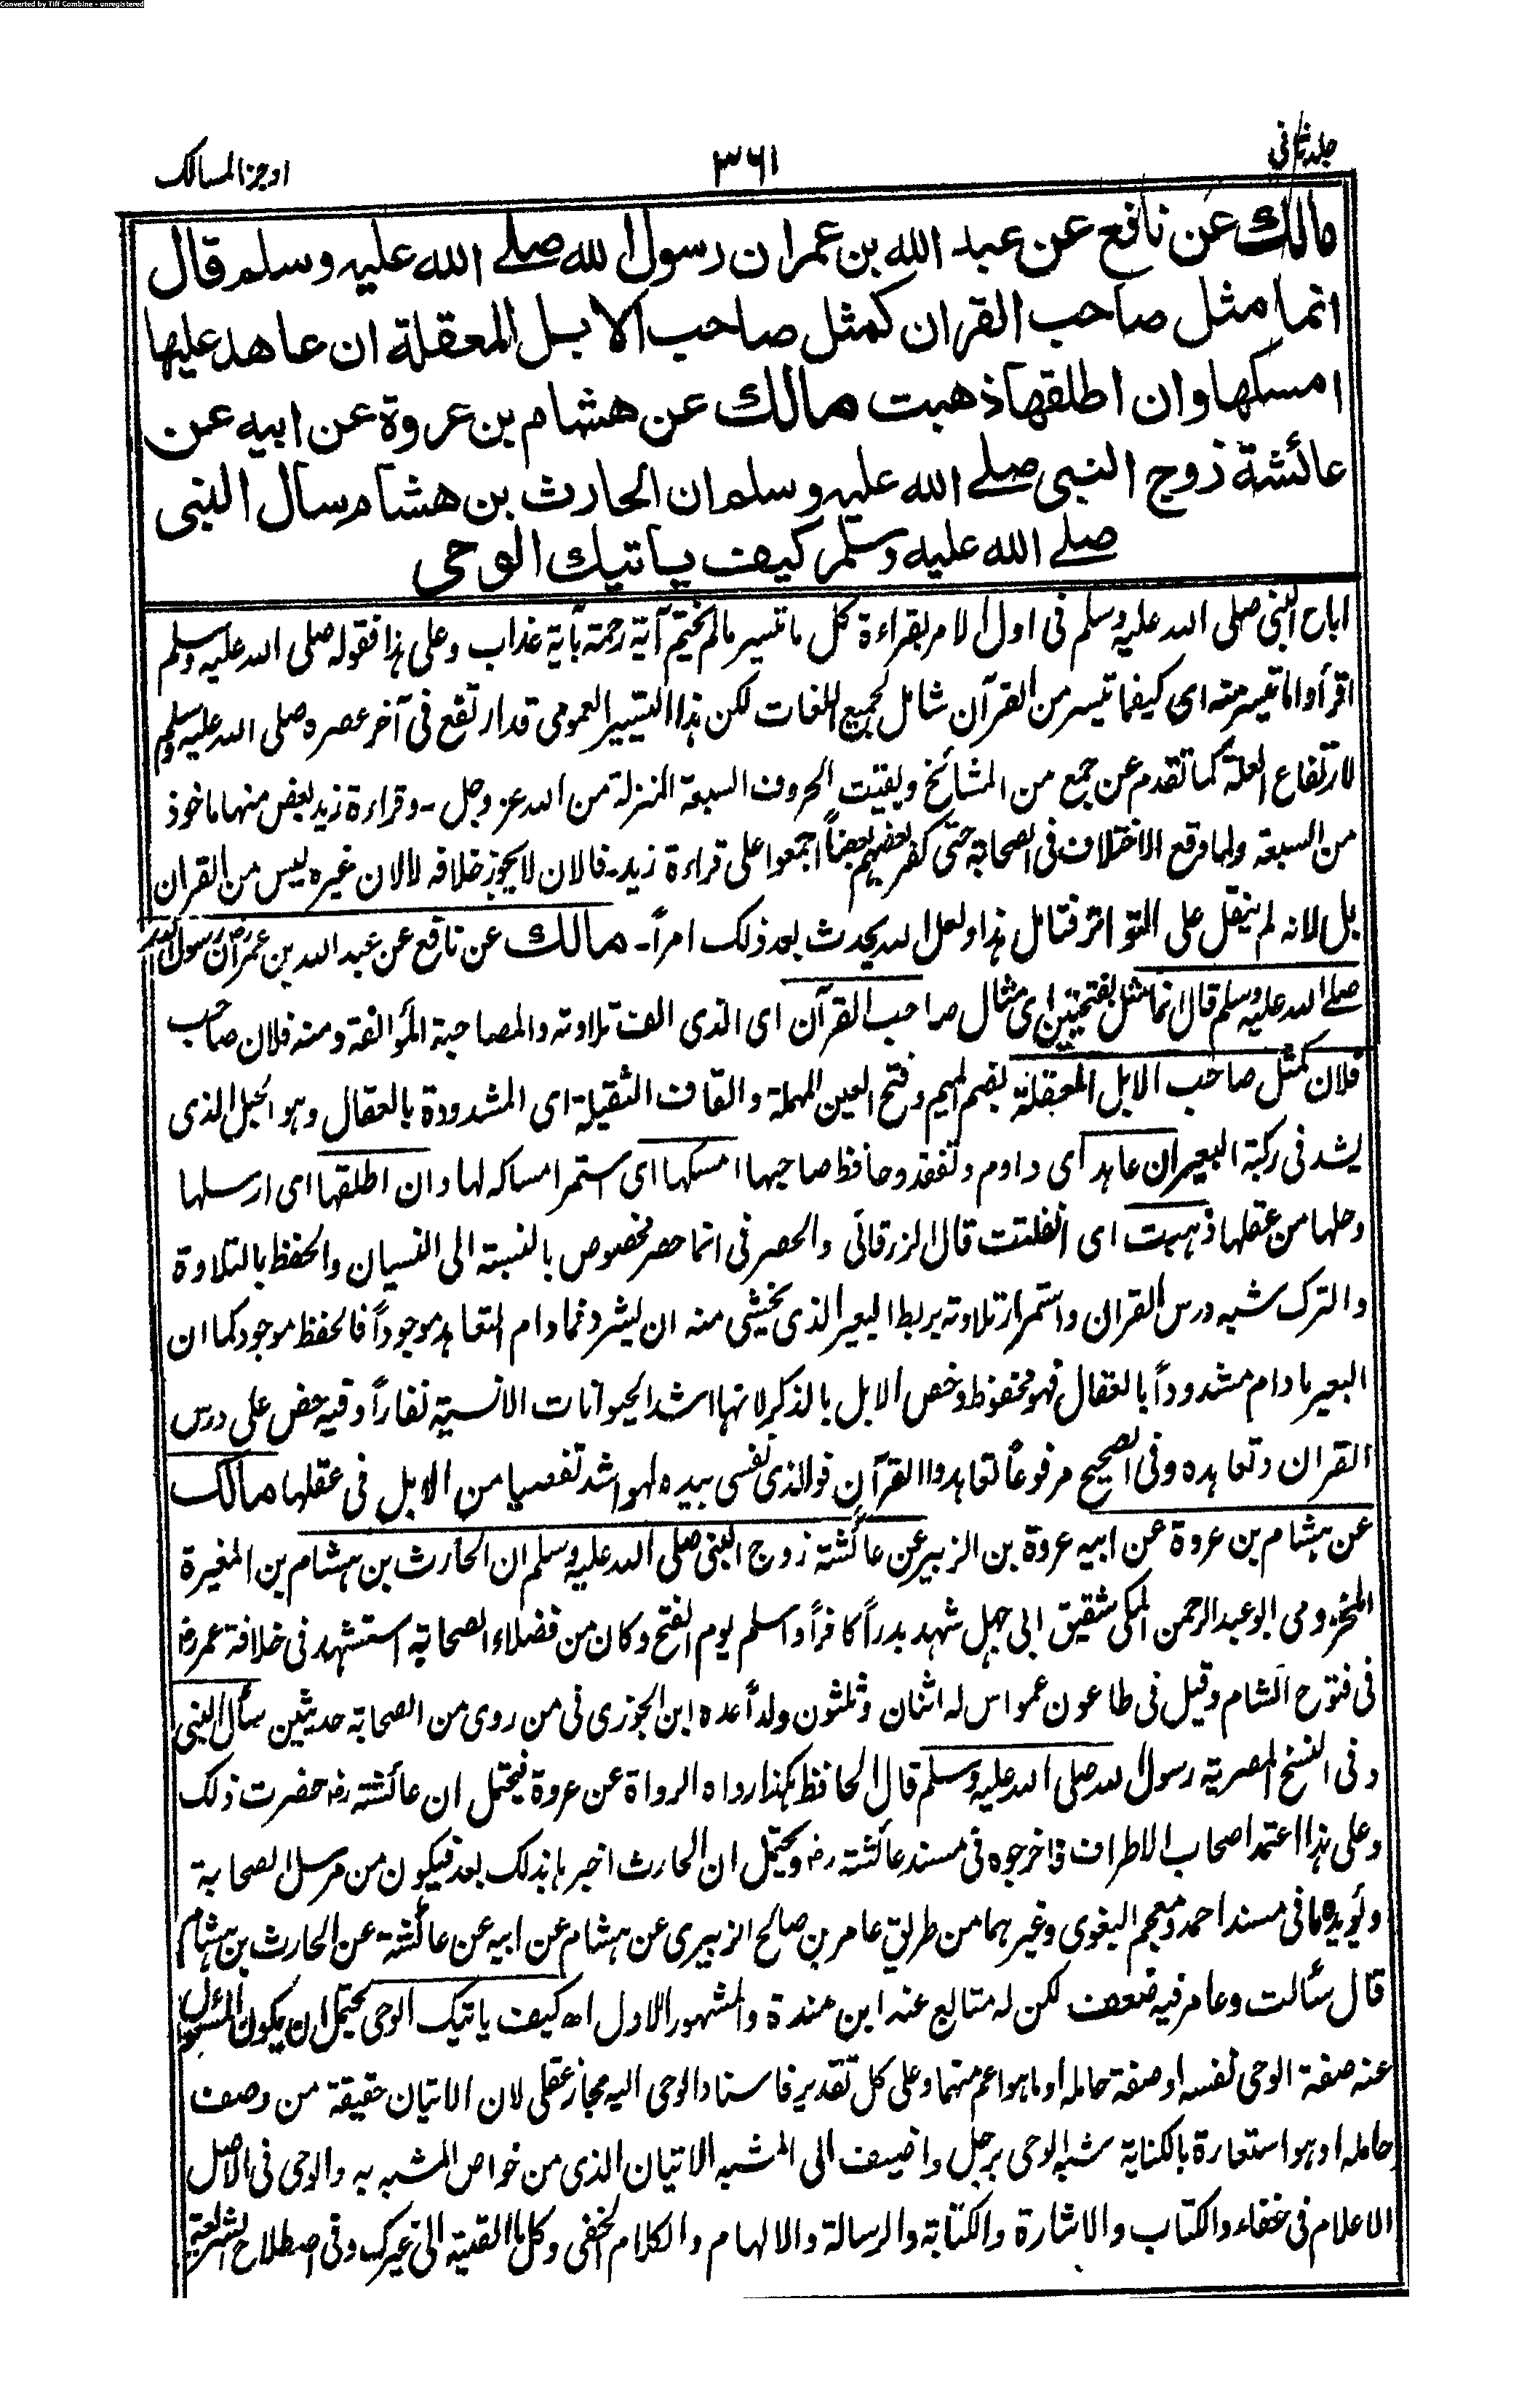 Converted by Tiff Combine - unregistered
جلد ثانی
۳۶۱
اوجز المسالک
مالك عن نافع عن عبد الله بن عمر ان رسول الله صلے الله عليه وسلم قال
انما مثل صاحب القران كمثل صاحب الابل المعقلة ان عاهد عليها
امسكها وان اطلقها ذهبت مالك عن هشام بن عروة عن ابيه عن
عائشة زوج النبي صلے الله عليه وسلم ان الحارث بن هشام سال النبي
صلے الله عليه وسلم كيف ياتيك الوحي
اباح النبی صلی الله علیہ وسلم فی اول الامر بقراءة كل ما تيسر مالم يختم آية رحمة بآية عذاب وعلى هذا فقوله صلى الله عليه وسلم
اقرأوا ما تيسر منه اى كيفما تيسر من القرآن شامل لجميع اللغات لكن هذا التيسير العمومى قد ارتفع فى آخر عصره صلى الله عليه وسلم
لارتفاع العلة كما تقدم عن جمع من المشائخ وبقيت الحروف السبعة المنزلة من الله عز وجل ۔ وقراءة زيد بعض منها ماخوذ
من السبعة ولما وقع الاختلاف فى الصحابة حتى كفر بعضهم بعضاً اجمعوا على قراءة زيد ۔ فالان لا يجوز خلافه لا لان غيره ليس من القران
بل لانه لم ينقل على التواتر فتامل هذا ولعل الله يحدث بعد ذلك امراً ۔ مالك عن نافع عن عبد الله بن عمر رض ان رسول الله
صلے الله عليه وسلم قال انما مثل بفتحتين اى مثال صاحب القرآن اى الذى الف تلاوته والمصاحبة المؤالفة ومنه فلان صاحب
فلان كمثل صاحب الابل المعقلة بضم الميم وفتح العين المهملة والقاف الثقيلة اى المشدودة بالعقال وهو الحبل الذى
يشد فى ركبة البعير ان عاهد اى داوم وتفقد وحافظ صاحبها امسكها اى استمر امساكه لها وان اطلقها اى ارسلها
وحلها من عقلها ذهبت اى انفلتت قال الزرقانى والحصر فى انما حصر مخصوص بالنسبة الى النسيان والحفظ بالتلاوة
والترك شبه درس القران واستمرار تلاوته بربط البعير الذى يخشى منه ان يشرد فما دام التعاهد موجوداً فالحفظ موجود كما ان
البعير ما دام مشدوداً بالعقال فهو محفوظ وخص الابل بالذكر لانها اشد الحيوانات الانسية نفاراً وفيه حض على درس
القران وتعاهده وفى الصحيح مرفوعاً تعاهدوا القرآن فوالذى نفسى بيده لهو اشد تفصيا من الابل فى عقلها مالك
عن هشام بن عروة عن ابيه عروة بن الزبير عن عائشة زوج النبى صلى الله عليه وسلم ان الحارث بن هشام بن المغيرة
المخزومى ابو عبد الرحمن المكى شقيق ابى جهل شهد بدراً كافراً واسلم يوم الفتح وكان من فضلاء الصحابة استشهد فى خلافة عمر رض
فى فتوح الشام وقيل فى طاعون عمواس له اثنان وثلثون ولداً عده ابن الجوزى فى من روى من الصحابة حديثين سأل النبى
وفى النسخ المصرية رسول الله صلى الله عليه وسلم قال الحافظ هكذا رواه الرواة عن عروة فيحتمل ان عائشة رض حضرت ذلك
وعلى هذا اعتمد اصحاب الاطراف فاخرجوه فى مسند عائشة رض ويحتمل ان الحارث اخبرها بذلك بعد فيكون من مرسل الصحابة
ويؤيده ما فى مسند احمد ومعجم البغوى وغيرهما من طريق عامر بن صالح الزبيرى عن هشام عن ابيه عن عائشة عن الحارث بن هشام
قال سألت وعامر فيه ضعف لكن له متابع عند ابن مندة والمشهور الاول اه كيف ياتيك الوحى يحتمل ان يكون المسئول
عنه صفة الوحى نفسه او صفة حامله او ما هو اعم منهما وعلى كل تقدير فاسناد الوحى اليه مجاز عقلى لان الاتيان حقيقة من وصف
حامله او هو استعارة بالكناية شبه الوحى برجل واضيف الى المشبه الاتيان الذى من خواص المشبه به والوحى فى الاصل
الاعلام فى خفاء والكتاب والاشارة والكتابة والرسالة والالهام والكلام الخفى وكل ما القيته الى غيرك وفى اصطلاح الشريعة